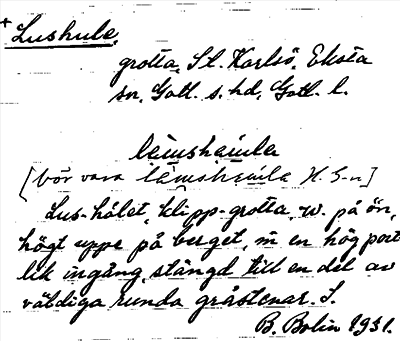 + Lushule,
grotta, St. Karlsö, Eksta
sn, Gotl. s. hd, Gotl. l.
låusháula
[bör vara låushaula H. G-n]
Lus-hålet, klipp-grotta, w. på ön,
högt uppe på berget, m en hög port
lik ingång, stängd till en del av
väldiga runda gråstenar. S.
B. Bolin 1931.